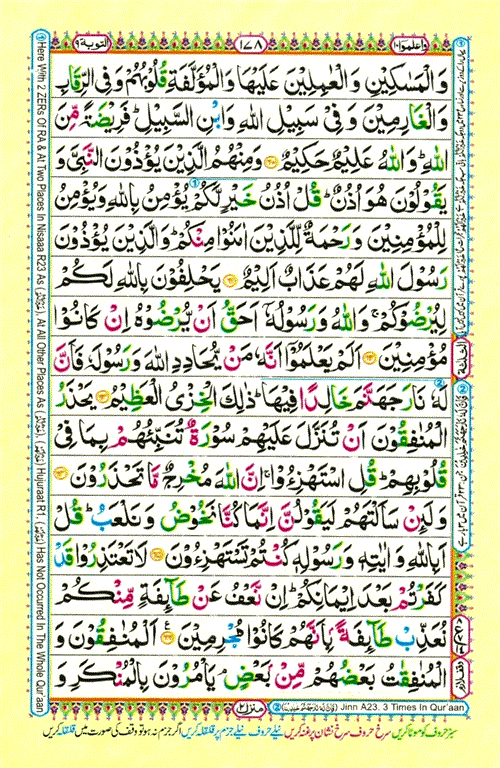 واعلموا١٠
١٧٨
التوبة٩
وَالْمَسٰكِيْنِ وَالْعٰمِلِيْنَ عَلَيْهَا وَالْمُؤَلَّفَةِ قُلُوْبُهُمْ وَفِي الرِّقَابِ
وَالْغٰرِمِيْنَ وَفِيْ سَبِيْلِ اللّٰهِ وَابْنِ السَّبِيْلِ ؕ فَرِيْضَةً مِّنَ
اللّٰهِ ؕ وَاللّٰهُ عَلِيْمٌ حَكِيْمٌ ﴿٦٠﴾ وَمِنْهُمُ الَّذِيْنَ يُؤْذُوْنَ النَّبِيَّ وَ
يَقُوْلُوْنَ هُوَ اُذُنٌ ؕ قُلْ اُذُنُ خَيْرٍ لَّكُمْ يُؤْمِنُ بِاللّٰهِ وَيُؤْمِنُ
لِلْمُؤْمِنِيْنَ وَرَحْمَةٌ لِّلَّذِيْنَ اٰمَنُوْا مِنْكُمْ ؕ وَالَّذِيْنَ يُؤْذُوْنَ
رَسُوْلَ اللّٰهِ لَهُمْ عَذَابٌ اَلِيْمٌ ﴿٦١﴾ يَحْلِفُوْنَ بِاللّٰهِ لَكُمْ
لِيُرْضُوْكُمْ ۚ وَاللّٰهُ وَرَسُوْلُهٗۤ اَحَقُّ اَنْ يُّرْضُوْهُ اِنْ كَانُوْا
مُؤْمِنِيْنَ ﴿٦٢﴾ اَلَمْ يَعْلَمُوْۤا اَنَّهٗ مَنْ يُّحَادِدِ اللّٰهَ وَرَسُوْلَهٗ فَاَنَّ
لَهٗ نَارَ جَهَنَّمَ خَالِدًا فِيْهَا ؕ ذٰلِكَ الْخِزْيُ الْعَظِيْمُ ﴿٦٣﴾ يَحْذَرُ
الْمُنٰفِقُوْنَ اَنْ تُنَزَّلَ عَلَيْهِمْ سُوْرَةٌ تُنَبِّئُهُمْ بِمَا فِيْ
قُلُوْبِهِمْ ؕ قُلِ اسْتَهْزِءُوْا ۚ اِنَّ اللّٰهَ مُخْرِجٌ مَّا تَحْذَرُوْنَ ﴿٦٤﴾
وَلَئِنْ سَاَلْتَهُمْ لَيَقُوْلُنَّ اِنَّمَا كُنَّا نَخُوْضُ وَنَلْعَبُ ؕ قُلْ
اَبِاللّٰهِ وَاٰيٰتِهٖ وَرَسُوْلِهٖ كُنْتُمْ تَسْتَهْزِءُوْنَ ﴿٦٥﴾ لَا تَعْتَذِرُوْا قَدْ
كَفَرْتُمْ بَعْدَ اِيْمَانِكُمْ ؕ اِنْ نَّعْفُ عَنْ طَآئِفَةٍ مِّنْكُمْ
نُعَذِّبْ طَآئِفَةًۢ بِاَنَّهُمْ كَانُوْا مُجْرِمِيْنَ ﴿٦٦﴾ اَلْمُنٰفِقُوْنَ وَ
الْمُنٰفِقٰتُ بَعْضُهُمْ مِّنْۢ بَعْضٍ ۘ يَاْمُرُوْنَ بِالْمُنْكَرِ وَ
منزل٢
Jinn A23. 3 Times In Qur'aan
① Here With 2 ZERs Of RA & At Two Places In Nisaaa R23 As At All Other Places As Hujuraat R1: Has Not Occurred In The Whole Qur'aan
سبز حروف کو موٹا کریں سرخ حروف سرخ نشان پر غنہ کریں نیلے حروف نیلے جزم پر قلقلہ کریں اگر جزم نہ ہو تو وقف کی صورت میں قلقلہ کریں